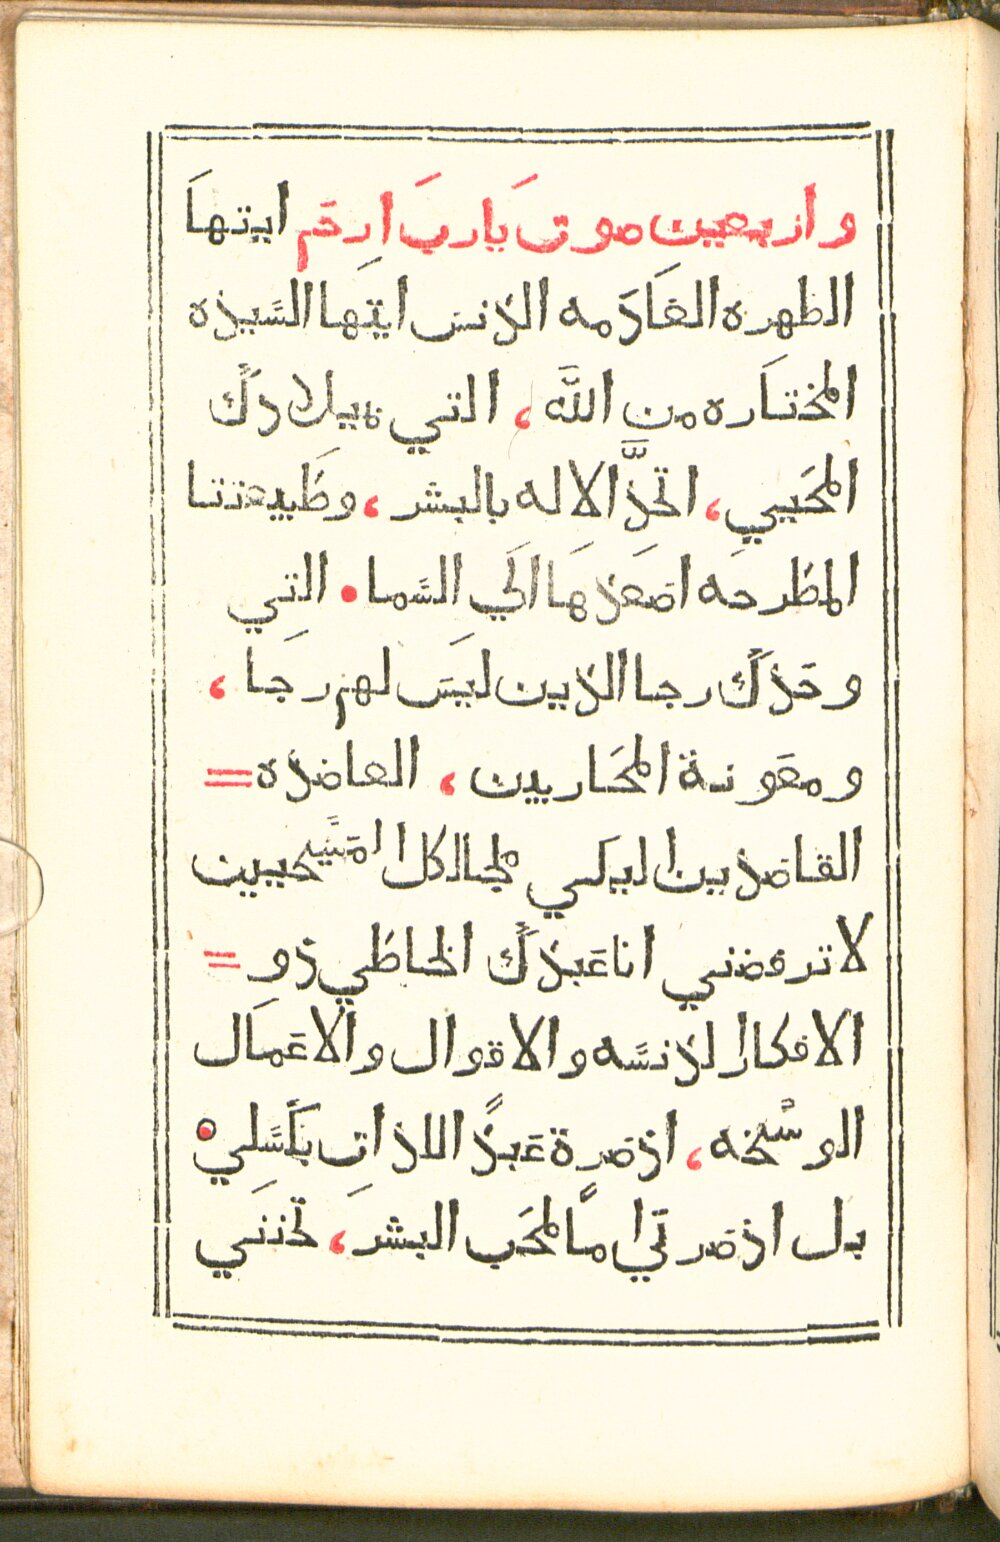 واربعين صوت يَاربَ ارِحَم ايتهاَ
الطهره الغاَدَمه الدنس ايتها السَيده
المختاَره من اللَّه ، التي بميلادكً
المحَيي ، اتحدَّ الاله بالبشر ، وطَبيعتنا
المطرحَه اصَعَدهَا الَي السَما • التِي
وحَدكً رجا الذين ليسَ لهم رجاَ ،
ومعَونة المحَاربين ، العاضده =
القاصدين اليكي ملجا لكل المسَيحيين
لا ترفضني انا عَبدكً الخاطي ذو =
الافكار الدنسَه والاقوال والاعَماَل
الوسْخه ، اذ صرة عَبدً اللذاتِ بكَسَلي •
بل اذ صرتي امًا لمحَب البشر ، تحَننَي